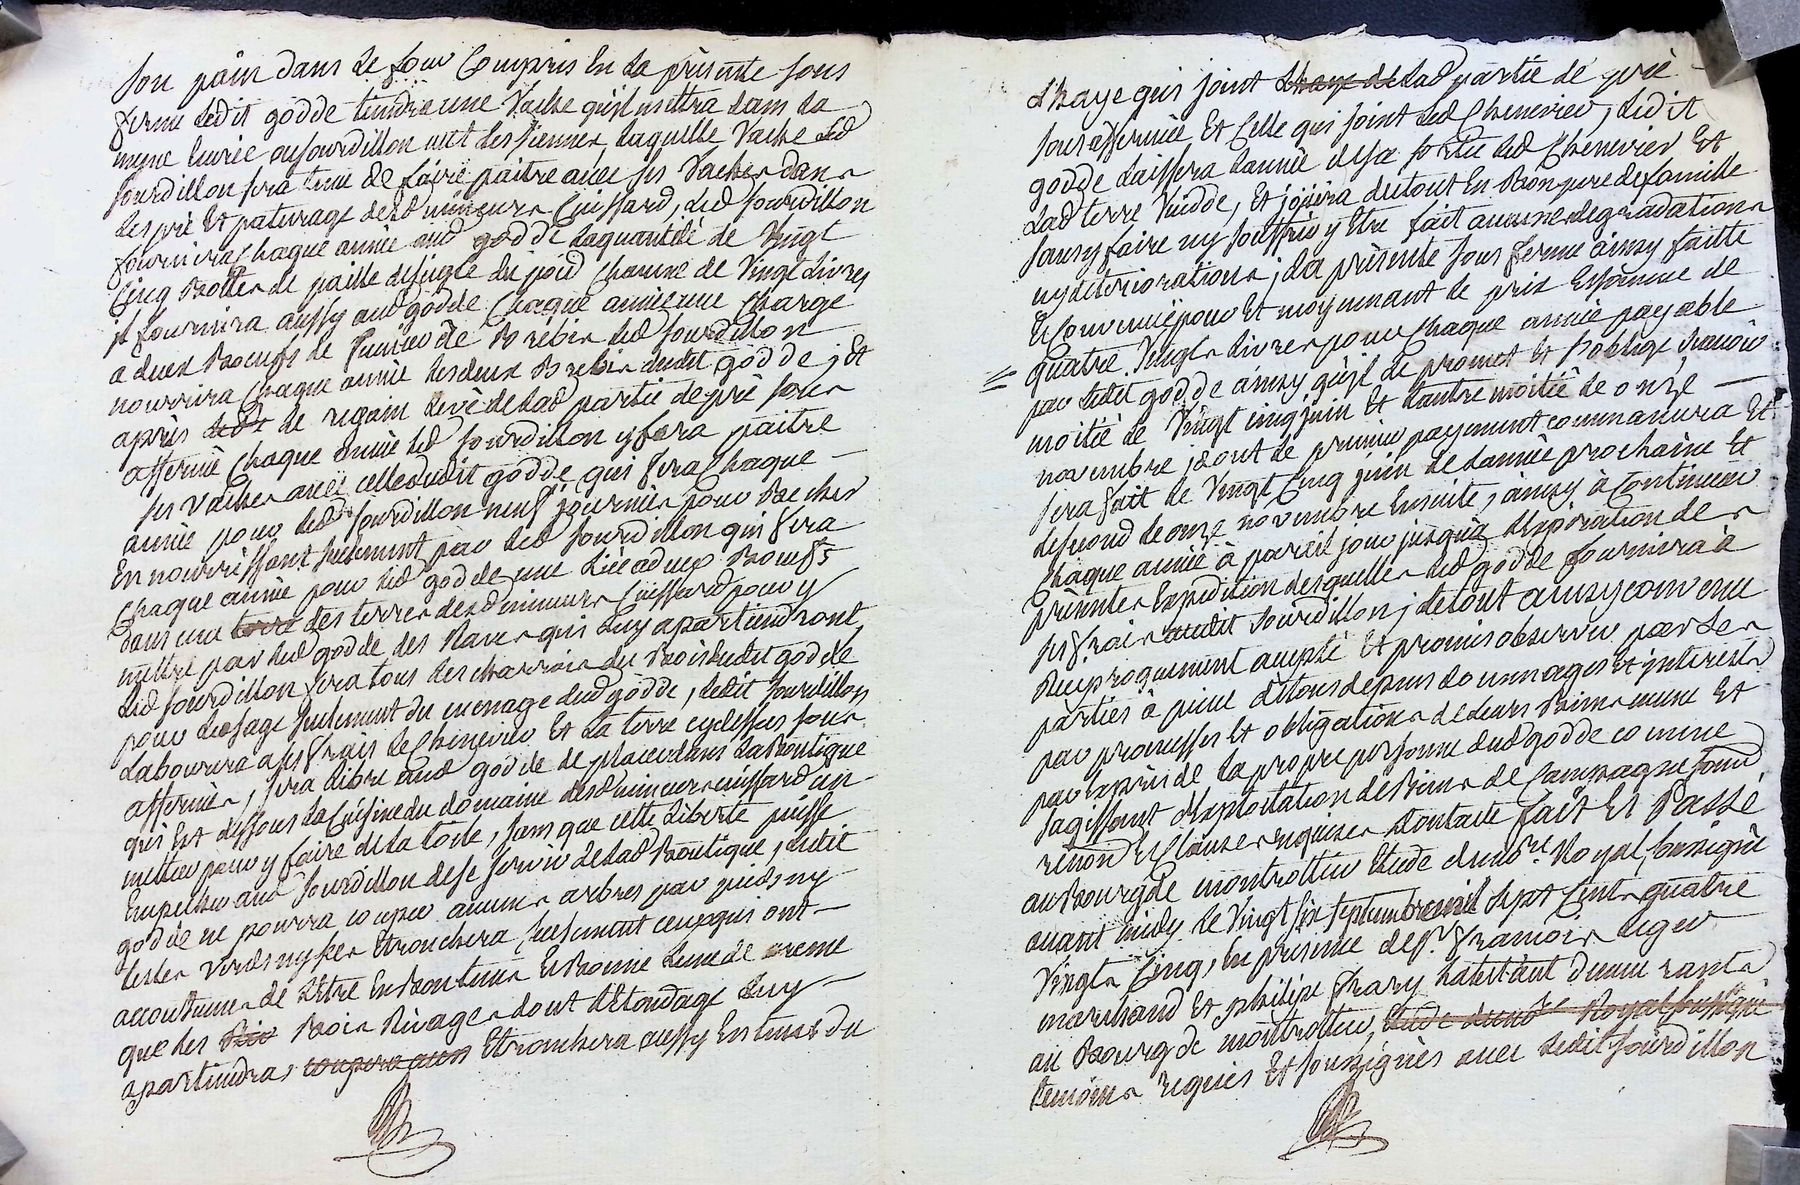 son pain dans le four Compris En la présente sous
ferme ledit godde tiendra une Vache qu'il mettra dans la
meme Ecurie ou sourdillon met les siennes, laquelle Vache led
sourdillon sera tenu de faire paitre avec ses Vaches dans
les pré Et paturage desd mineurs Cuissard, led sourdillon
fournira Chaque année aud godde la quantité de Vingt
Cinq Bottes de paille de seigle du poid Chacune de Vingt Livres
il fournira aussy aud godde Chaque année une Charge
a deux Boeufs de fumier de Brebis led sourdillon
nourrira Chaque année les deux Brebis dudit godde ; Et
après le regain levé de lad partie de pré sous
affermé Chaque année led sourdillon y fera paitre
ses Vaches avec celle dudit godde qui fera Chaque
année pour led sourdillon neuf journées pour Becher
En nourrissant seulement par led sourdillon qui fera
Chaque année pour led godde une a deux Boeufs
dans une terre des terres desd mineurs Cuissard pour y
mettre par led godde des Raves qui luy apartiendront,
led sourdillon fera tous les charrois du Bois dudit godde
pour Lusage seulement du menage dud godde, ledit sourdillon
Labourera a ses frais le Chenevier Et la terre cydessus sous
affermés, sera libre aud godde de placer dans la Boutique
qui Est dessous la Cuisine du domaine desd mineurs cuissard un
mettier pour y faire de la toile, sans que cette Liberté puisse
Empecher aud sourdillon de se servir de lad Boutique, ledit
godde ne pourra couper aucuns arbres par pieds ny
testes Verds ny secs Etronchera seulement ceux qui ont
accoutumes de L'etre En Bon tems En Bonne Lune de meme
que les Bois Bois Rivages dont L'Etondage Luy
apartiendra, coupera aux Etronchera aussy En tems du
Lhaye qui joint Lhaye de lad partie de pré
sous affermée Et Celle qui joint led Chenevier, ledit
godde Laissera Lannée de sa sortie led Chenevier Et
Lad terre Vuidde, Et jouira du tout En Bon pere de famille
sans y faire ny souffrir y Etre fait aucunes degradations
ny deteriorations ; La présente sous ferme ainsy faitte
Et Convenüe pour Et moyennant le prix Et somme de
quatre Vingts Livres pour Chaque année payable
par ledit godde ainsy qu'il le promet Et s'oblige scavoir
moitié le Vingt cinq juin Et Lautre moitié le onze
novembre ; dont le premier payement commancera Et
sera fait le Vingt Cinq juin de Lannée prochaine Et
le second le onze novembre Ensuite, ainsy à Continuer
Chaque année à pareil jour jusqua L'Expiration des
présentes Expedition desquelles led godde fournira à
ses frais audit sourdillon ; le tout ainsy convenu
Reciproquement accepté Et promis observer par les
parties à peine de tous depens dommages Et interests
par promesses Et obligations de Leurs Biens meme Et
par la prise de la propre personne dud godde comme
s'agissant d'Exploitation de Biens de Campagne soum
renon Et Clauses requises dont acte fait Et Passé
au Bourg de montrottier Etude du nore Royal soussigné
avant midy le Vingt six septembre mil sept Cents quatre
Vingts Cinq, En presence de sr françois Leger
marchand Et philipe habitant demeurants
au Bourg de montrottier, Etude du nore Royal soussigné
temoins requis Et soussignés avec ledit sourdillon